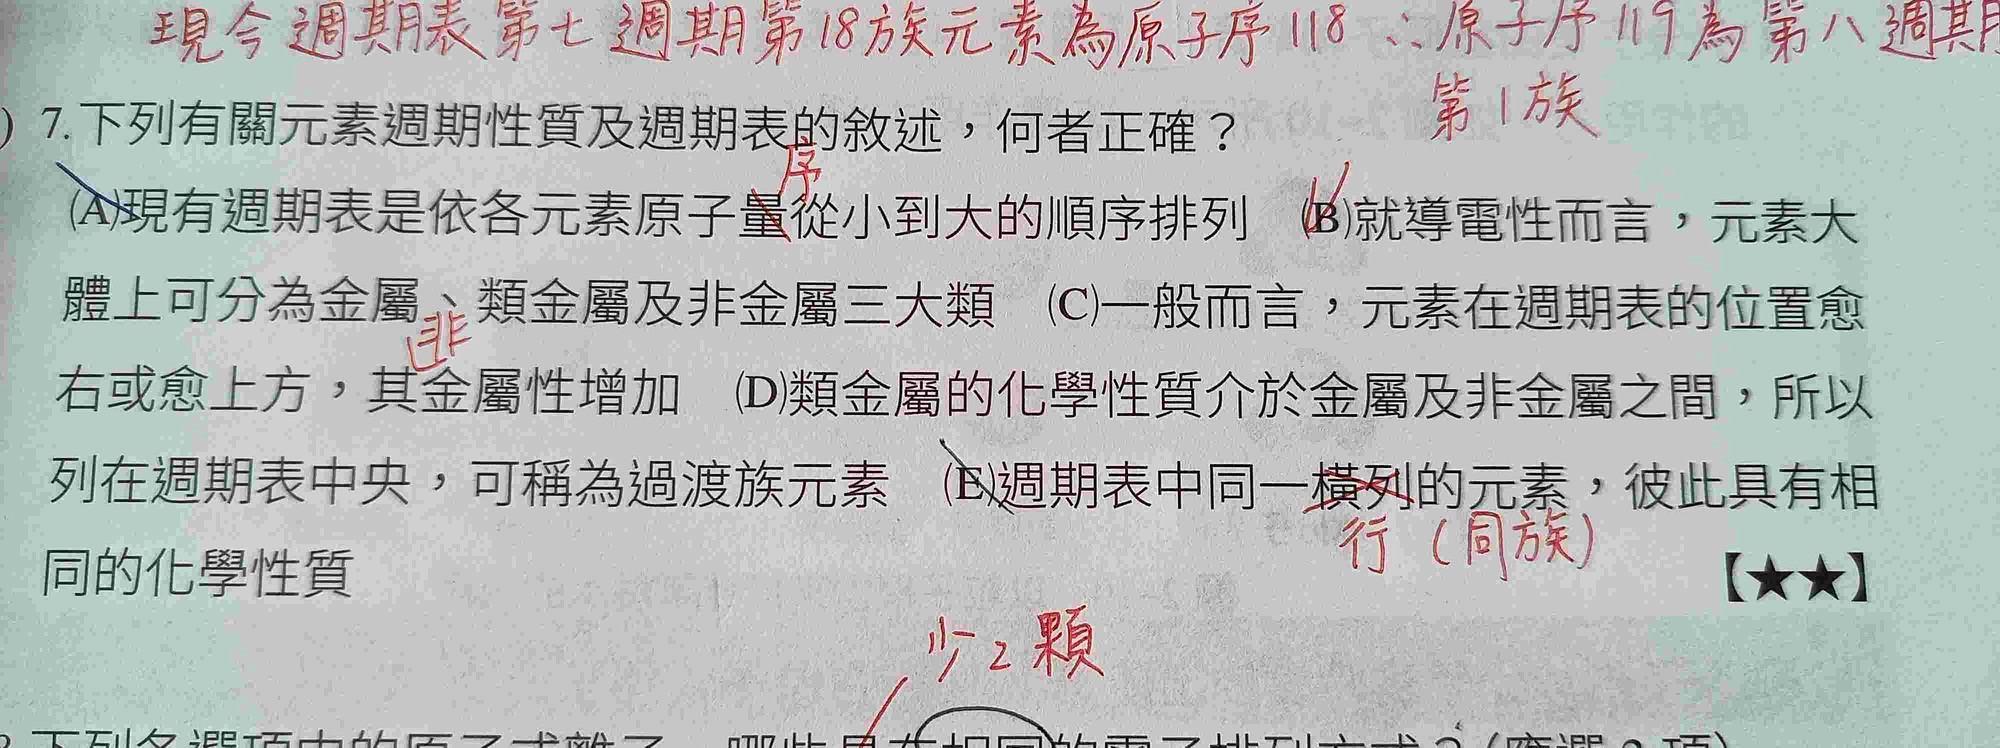 現今週期表第七週期第18族元素為原子序118 ∴原子序119為第八週期
第1族
) 7.下列有關元素週期性質及週期表的敘述，何者正確？
序
(A)現有週期表是依各元素原子量從小到大的順序排列 (B)就導電性而言，元素大
體上可分為金屬、類金屬及非金屬三大類 (C)一般而言，元素在週期表的位置愈
非
右或愈上方，其金屬性增加 (D)類金屬的化學性質介於金屬及非金屬之間，所以
列在週期表中央，可稱為過渡族元素 (E)週期表中同一橫列的元素，彼此具有相
行(同族)
同的化學性質 【★★】
少2顆
下列各選項中的原子或離子，哪些具有相同的電子排列方式？(應選2項)